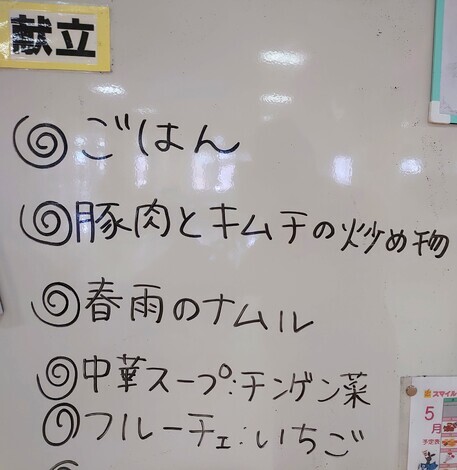 献立
ごはん
豚肉とキムチの炒め物
春雨のナムル
中華スープ:チンゲン菜
フルーチェ:いちご
スマイル
5
月